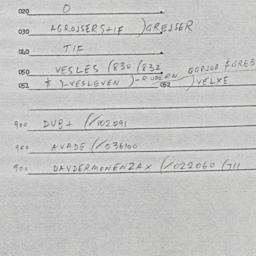 020 O
030 AGROJSERS+IF )GREJSER
040 TIF
050 VESLES (830/832
051 )-VESLEVEN )- 052 )VELXE
900 DUB+ (/102091
900 AVADE (/036100
900 DAVDERMONENZAX (/022060 (711